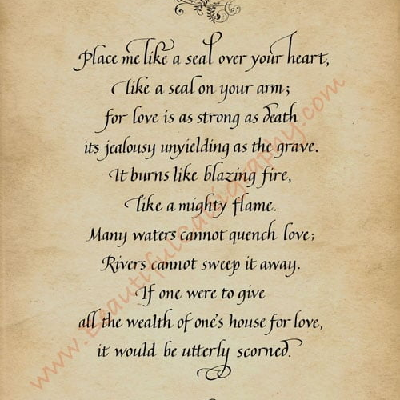 Place me like a seal over your heart,
like a seal on your arm;
for love is as strong as death
its jealousy unyielding as the grave.
It burns like blazing fire,
like a mighty flame.
Many waters cannot quench love;
Rivers cannot sweep it away.
If one were to give
all the wealth of one's house for love,
it would be utterly scorned.
www.BeautifulCalligraphy.com